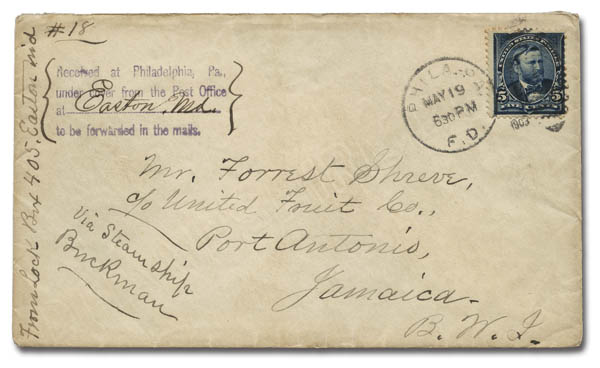 #18
Received at Philadelphia, Pa.,
under cover from the Post Office
at Easton, Md.
to be forwarded in the mails.
From Lock Box 405, Easton Md
PHILA. PA.
MAY 19
630 PM
F.D.
1903
5 5
Mr. Forrest Shreve,
c/o United Fruit Co.,
Port Antonio,
Jamaica.
B. W. I.
Via Steamship
Buckman